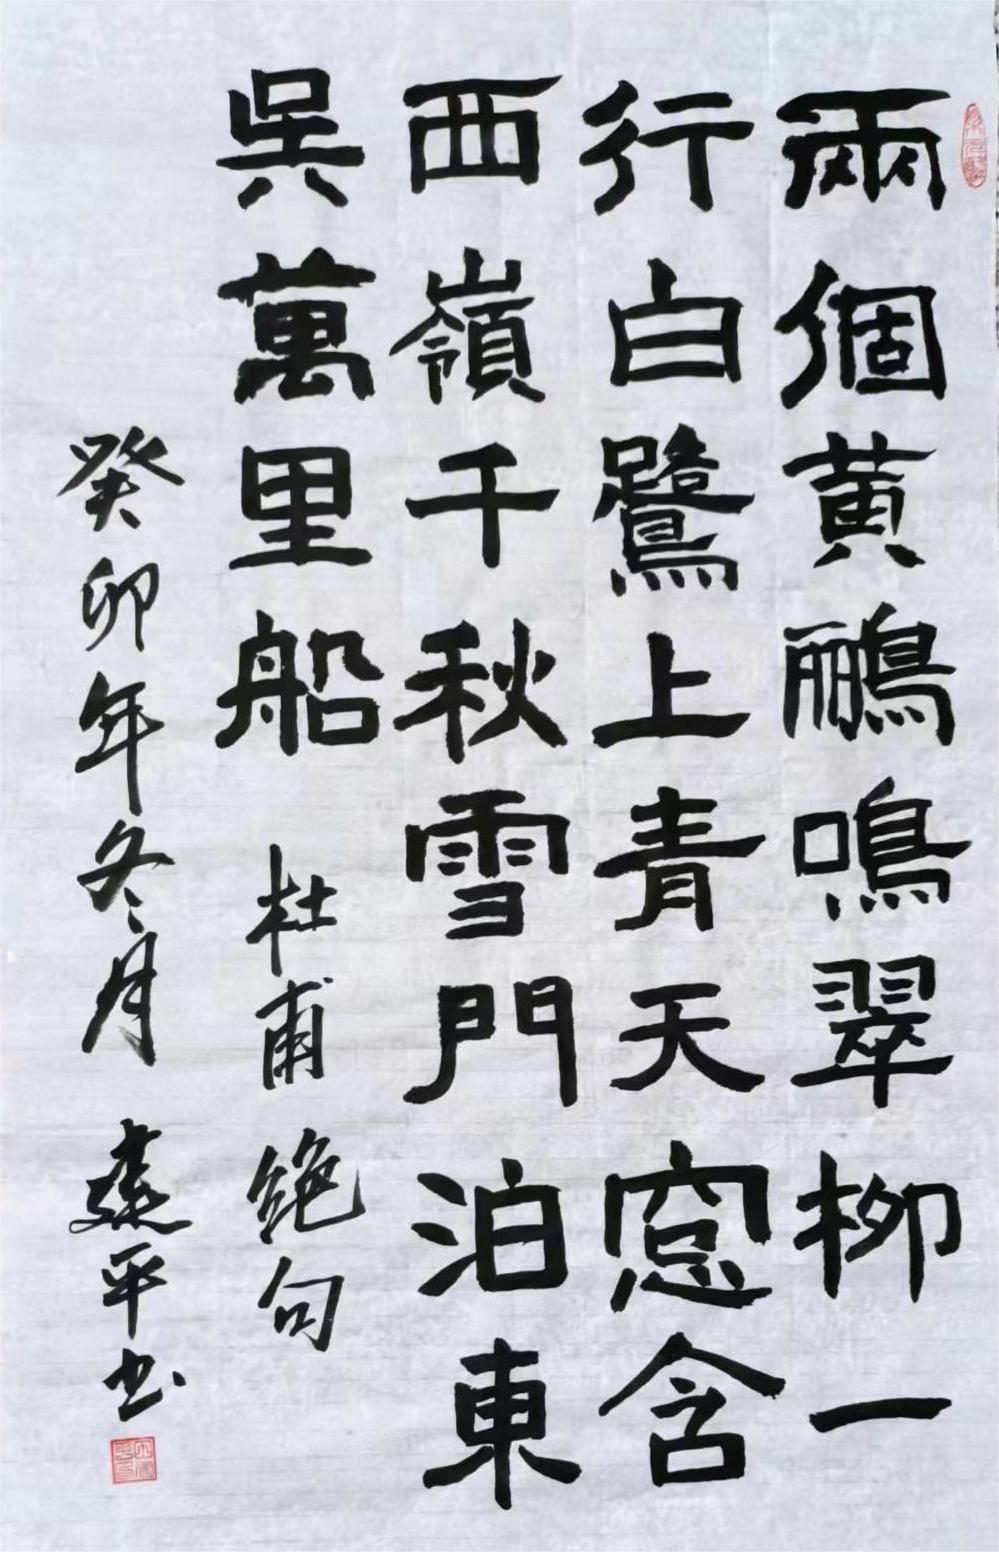 兩個黄鸝鳴翠柳一
行白鷺上青天窓含
西嶺千秋雪門泊東
吳萬里船 杜甫 绝句
癸卯年冬月 平书